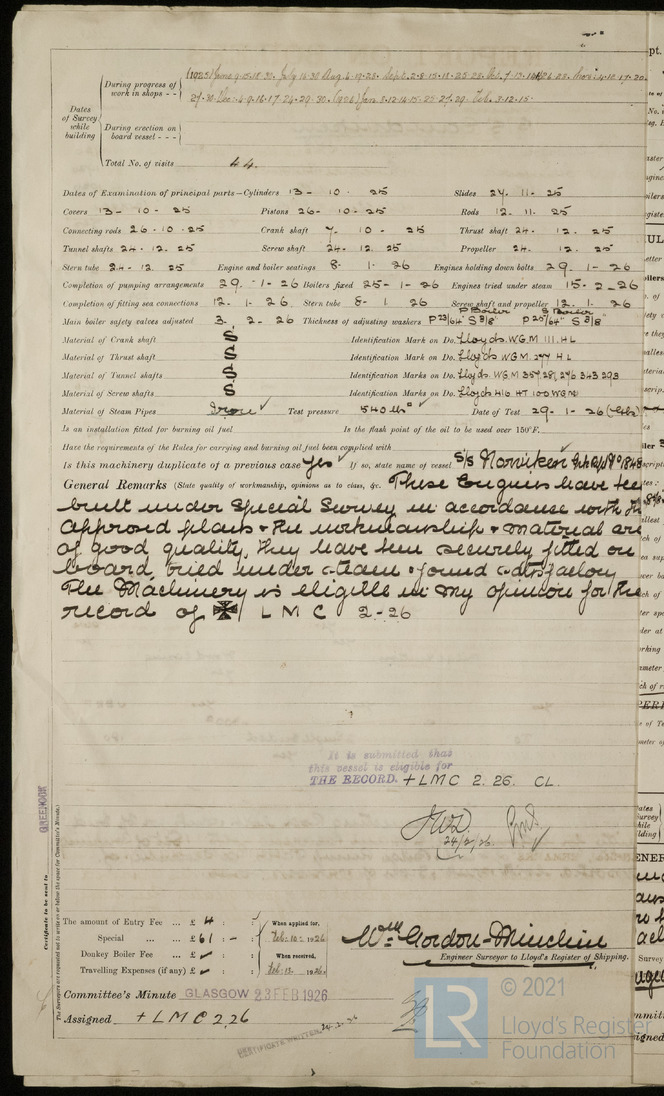 (1925) June 9.15.18.30. July 16.30 Aug. 6.19.26. Sept. 2.8.15.18.25.28. Oct. 7.13. 26.28. Nov. 4.10.17.20.
During progress of work in shops - -
27.30. Dec. 4.9.16.17.24.29.30. (1926) Jan. 8.12.14.15.25.27.29. Feb. 3.12.15.
Dates of Survey while building
During erection on board vessel - - -
Total No. of visits 44.
Dates of Examination of principal parts—Cylinders 13 - 10 - 25 Slides 24. 11. 25
Covers 13 - 10 - 25 Pistons 26 - 10 - 25 Rods 12. 11. 25
Connecting rods 26.10.25 Crank shaft 7. 10 - 25 Thrust shaft 24. 12. 25
Tunnel shafts 24. 12. 25 Screw shaft 24. 12. 25 Propeller 24. 12. 25
Stern tube 24. 12. 25 Engine and boiler seatings 8. 1. 26 Engines holding down bolts 29. 1 - 26
Completion of pumping arrangements 29. - 1 - 26 Boilers fixed 25 - 1 - 26 Engines tried under steam 15. 2 - 26
Completion of fitting sea connections 12. 1. 26. Stern tube 8 - 1 26 Screw shaft and propeller 12. 1. 26
P Boiler S Boiler
Main boiler safety valves adjusted 3. 2 - 26 Thickness of adjusting washers P 23/64" S 3/8" P 25/64" S 3/8"
Material of Crank shaft S Identification Mark on Do. Lloyds. W.G.M. 111. H.L
Material of Thrust shaft S Identification Mark on Do. Lloyds W G M. 277 H L
Material of Tunnel shafts S Identification Marks on Do. Lloyds. W G M
Material of Screw shafts S Identification Marks on Do. Lloyds 416 HT 100 W G M
Material of Steam Pipes Iron ✓ Test pressure 540 lbs ✓ Date of Test 29 - 1 - 26
Is an installation fitted for burning oil fuel Is the flash point of the oil to be used over 150°F.
Have the requirements of the Rules for carrying and burning oil fuel been complied with
Is this machinery duplicate of a previous case Yes ✓ If so, state name of vessel S/S
General Remarks (State quality of workmanship, opinions as to class, &c. These Engines have
built under Special Survey in accordance with
approved plans & the workmanship & material are
of good quality, they have been securely fitted on
board, tried under steam & found satisfactory
The Machinery is eligible in my opinion for the
record of ✠ L M C 2-26
It is submitted that
this vessel is eligible for
THE RECORD. + LMC 2. 26. CL.
24/2/26.
GREENOCK
Certificate to be sent to
The Surveyors are requested not to write on or below the space for Committee's Minute.
The amount of Entry Fee ... £ 4 : : When applied for,
Special ... ... £ 61 : - : Feb. 10. 1926
Donkey Boiler Fee ... £ : : When received,
Travelling Expenses (if any) £ : : Feb. 1926.
Wm Gordon-Minchin
Engineer Surveyor to Lloyd's Register of Shipping.
Committee's Minute GLASGOW 23 FEB 1926
Assigned + L M C 2,26
CERTIFICATE WRITTEN 24.2.26
LR © 2021
Lloyd's Register
Foundation